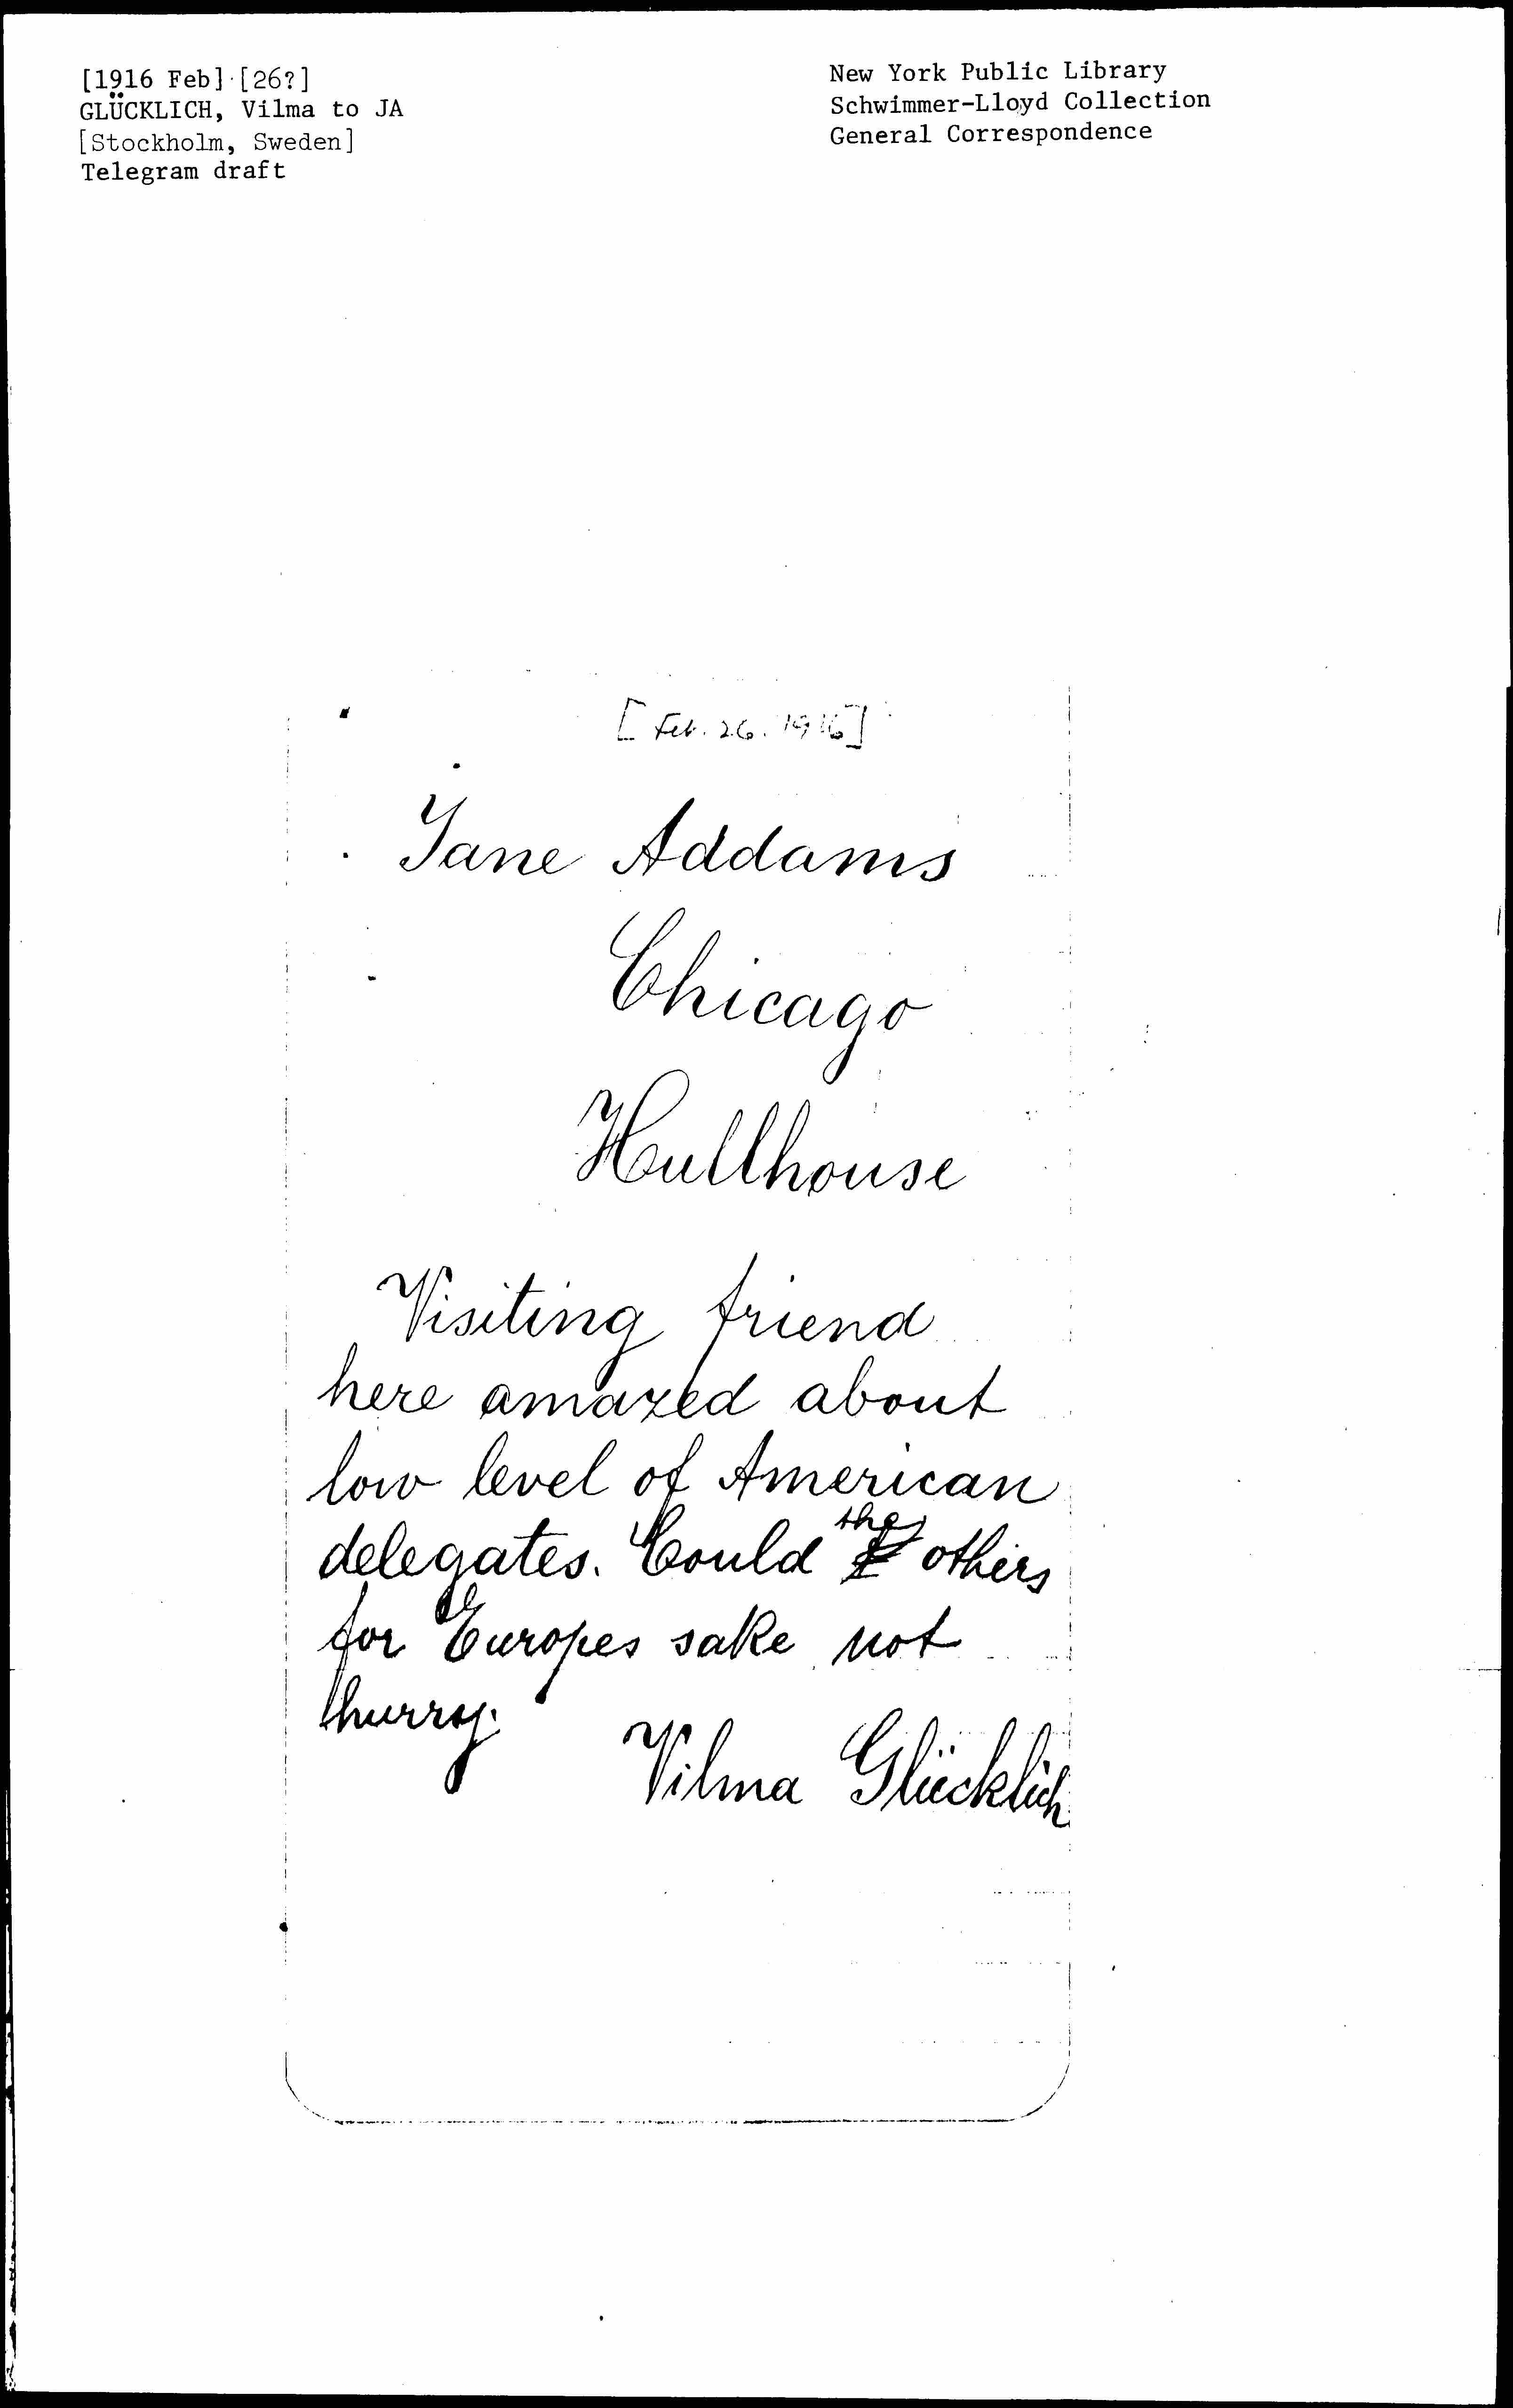 [1916 Feb] [26?]
GLÜCKLICH, Vilma to JA
[Stockholm, Sweden]
Telegram draft
New York Public Library
Schwimmer-Lloyd Collection
General Correspondence
[Feb. 26. 1916]
Jane Addams
Chicago
Hullhouse
Visiting friend
here amazed about
low level of American
delegates. Could the others
for Europes sake not
hurry.
Vilma Glücklich